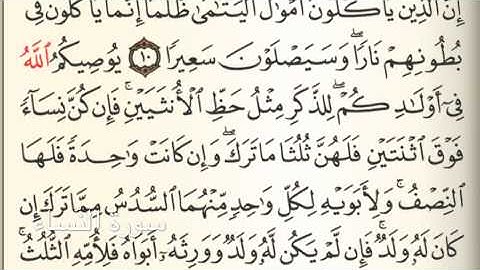 إِنَّ ٱلَّذِينَ يَأْكُلُونَ أَمْوَٰلَ ٱلْيَتَٰمَىٰ ظُلْمًا إِنَّمَا يَأْكُلُونَ فِى
بُطُونِهِمْ نَارًا ۖ وَسَيَصْلَوْنَ سَعِيرًا ١٠ يُوصِيكُمُ ٱللَّهُ
فِىٓ أَوْلَٰدِكُمْ ۖ لِلذَّكَرِ مِثْلُ حَظِّ ٱلْأُنثَيَيْنِ ۚ فَإِن كُنَّ نِسَآءً
فَوْقَ ٱثْنَتَيْنِ فَلَهُنَّ ثُلُثَا مَا تَرَكَ ۖ وَإِن كَانَتْ وَٰحِدَةً فَلَهَا
ٱلنِّصْفُ ۚ وَلِأَبَوَيْهِ لِكُلِّ وَٰحِدٍ مِّنْهُمَا ٱلسُّدُسُ مِمَّا تَرَكَ إِن
كَانَ لَهُۥ وَلَدٌ ۚ فَإِن لَّمْ يَكُن لَّهُۥ وَلَدٌ وَوَرِثَهُۥٓ أَبَوَاهُ فَلِأُمِّهِ ٱلثُّلُثُ ۚ
سورة النساء